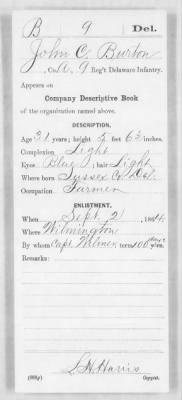 B 9 Del.
John C. Burton
, Co. A, 9 Reg't Delaware Infantry.
Appears on
Company Descriptive Book
of the organization named above.
DESCRIPTION.
Age 31 years; height 5 feet 6½ inches.
Complexion Light
Eyes Blue ; hair Light
Where born Sussex Co Del.
Occupation Farmer
ENLISTMENT.
When Sept. 2 , 1864.
Where Wilmington
By whom Capt. term 100 days
Remarks:
Harris
Copyist.